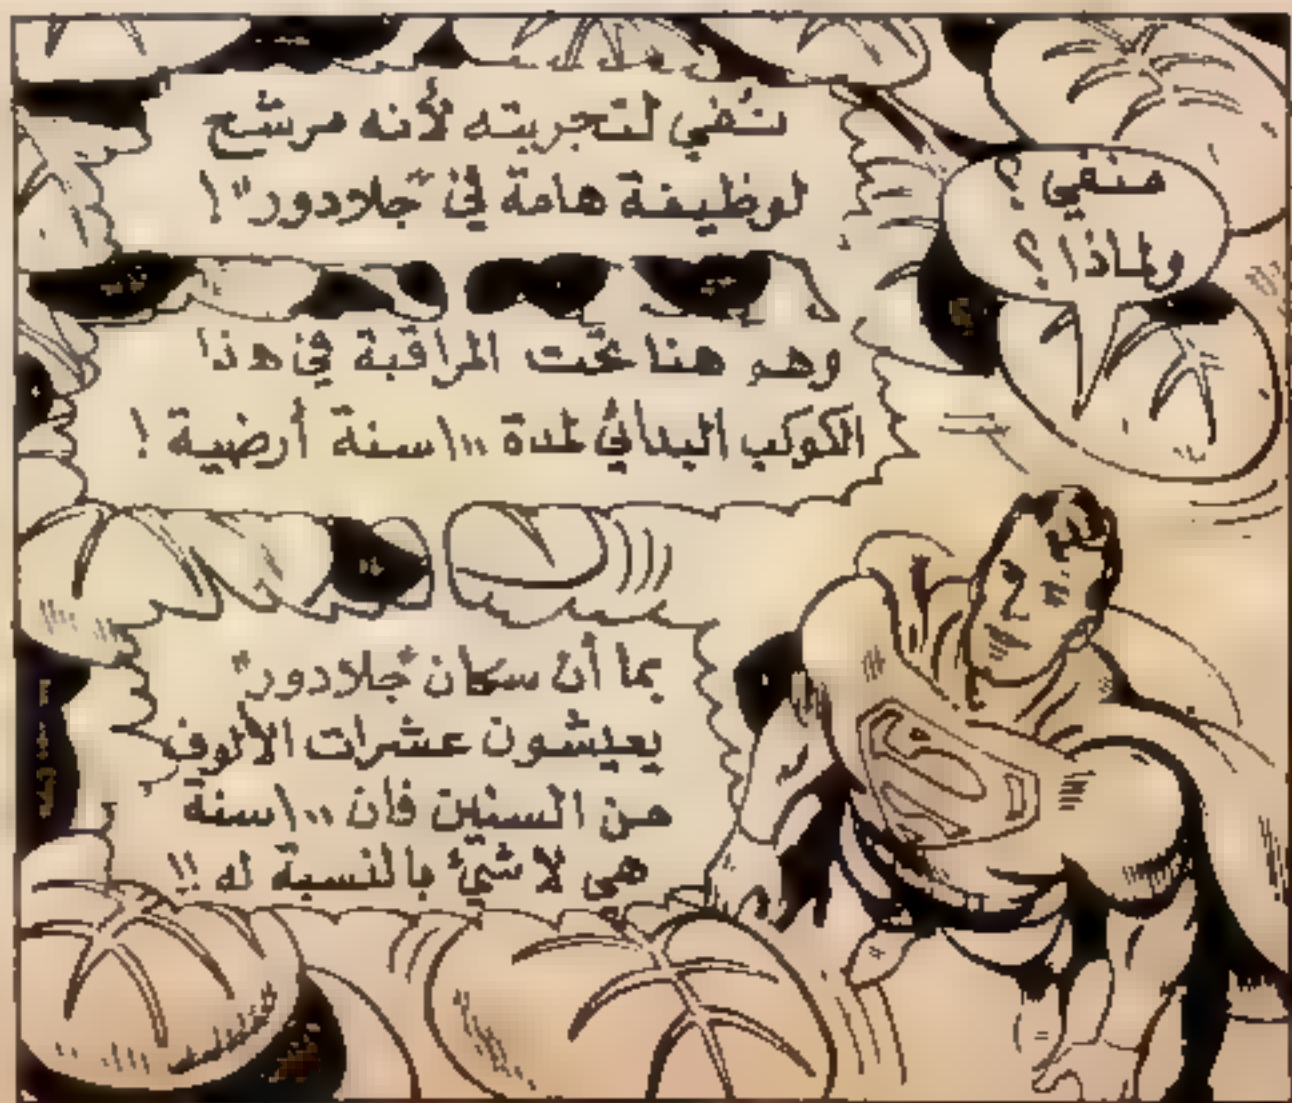 منفي ؟
ولماذا ؟
نُفي لتجربته لأنه مرشح
لوظيفة هامة في "جلادور" !
وهو هنا تحت المراقبة في هذا
الكوكب البدائي لمدة ١٠٠ سنة أرضية !
بما أن سكان "جلادور"
يعيشون عشرات الألوف
من السنين فان ١٠٠ سنة
هي لا شيء بالنسبة له !!